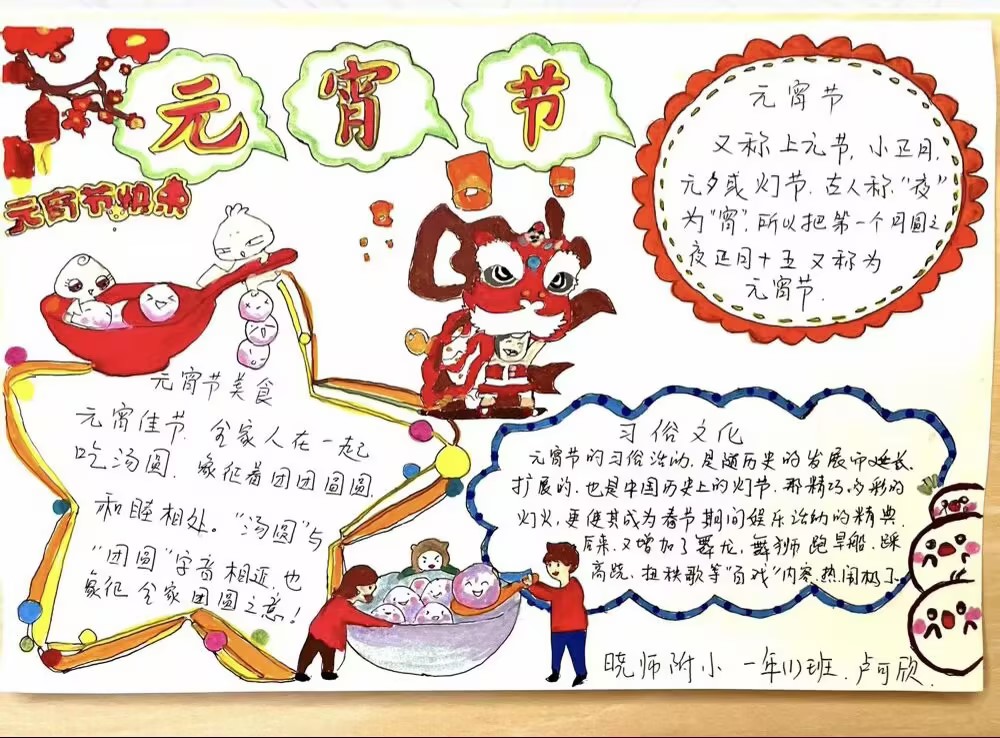 元宵节
元宵节快乐
元宵节
又称上元节,小正月,
元夕或灯节.古人称"夜"
为"宵",所以把第一个月圆之
夜正月十五又称为
元宵节.
元宵节美食
元宵佳节.全家人在一起
吃汤圆.象征着团团圆圆
和睦相处。"汤圆"与
"团圆"字音相近.也
象征全家团圆之意!
习俗文化
元宵节的习俗活动.是随历史的发展而延长,
扩展的.也是中国历史上的灯节.那精巧多彩的
灯火,更使其成为春节期间娱乐活动的精典.
后来.又增加了舞龙,舞狮跑旱船.踩
高跷.扭秧歌等"百戏"内容.热闹极了
晓师附小 一年(1)班.卢可欣.